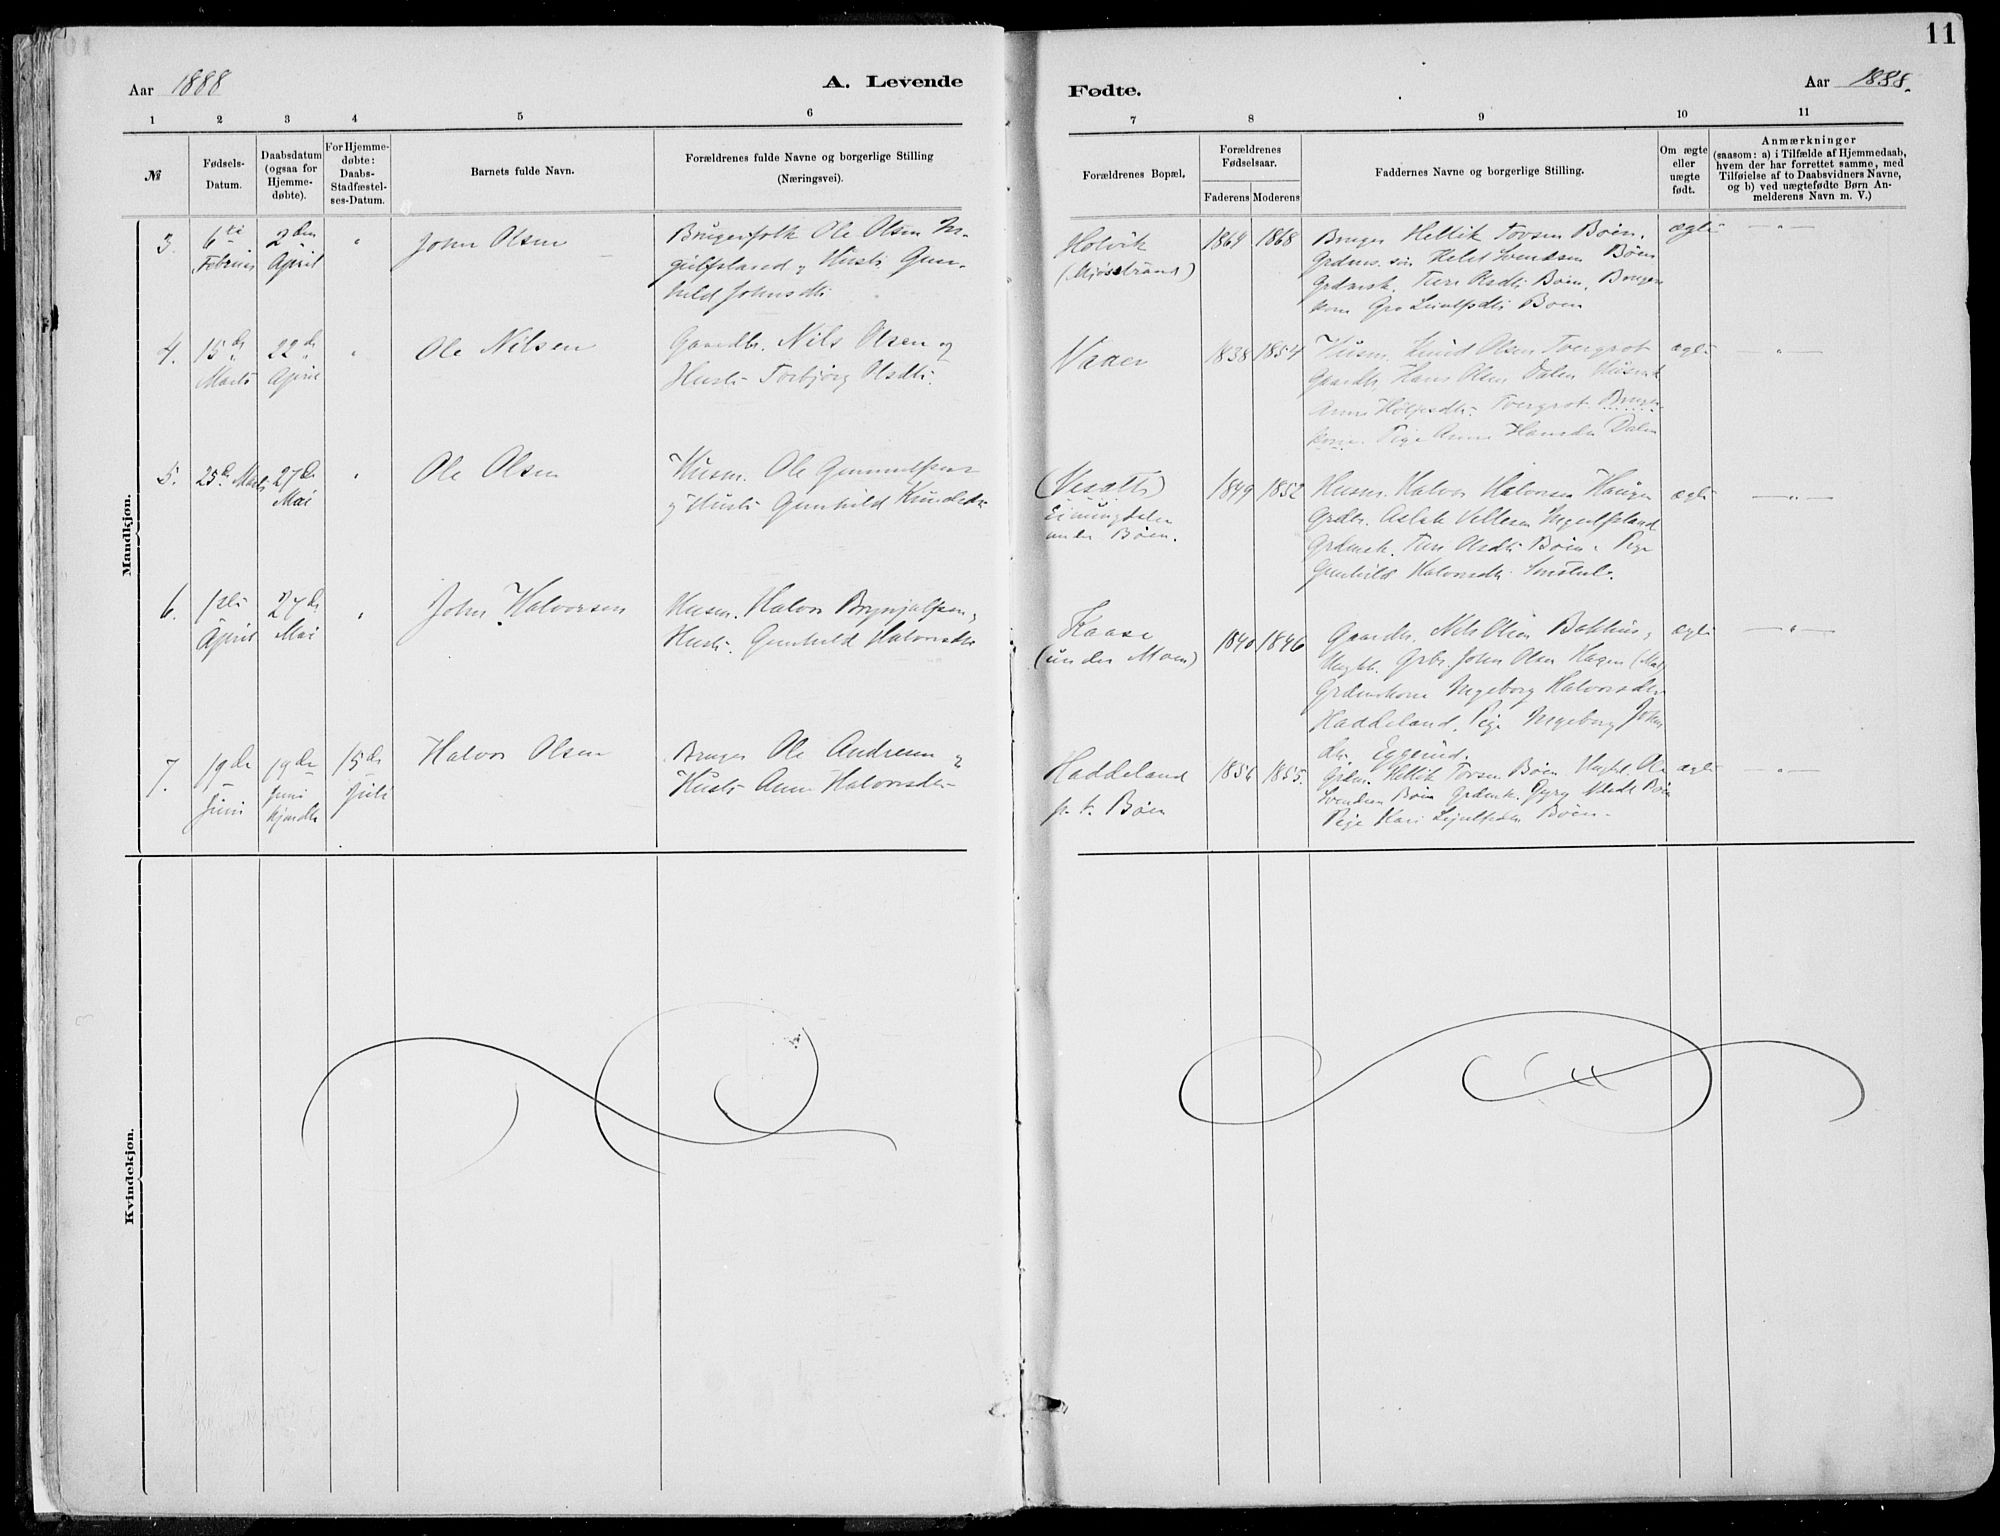 11
Aar 1888
A. Levende
Fødte.
Aar 1888.
1 2 3 4 5 6
7 8 9 10 11
№
Fødsels-
Datum.
Daabsdatum
(ogsaa for
Hjemme-
døbte).
For Hjemme-
døbte:
Daabs-
Stadfæstel-
ses-Datum.
Barnets fulde Navn.
Forældrenes fulde Navne og borgerlige Stilling
(Næringsvei).
Forældrenes Bopæl.
Forældrenes
Fødselsaar.
Faderens Moderens
Faddernes Navne og borgerlige Stilling.
Om ægte
eller
uægte
født.
Anmærkninger
(saasom: a) i Tilfælde af Hjemmedaab,
hvem der har forrettet samme, med
Tilføielse af to Daabsvidners Navne,
og b) ved uægtefødte Børn An-
melderens Navn m. V.)
Mandkjøn.
3.
6te
Februar
2den
April
"
John Olsen
Brugerfolk Ole Olsen In-
gulfsland og Hustr. Gun-
hild Johnsdtr
Holvik
(Mjøsstrand)
1864 1868
Bruger Hellik Tovsen Bøen.
Grdms. søn Svendsen Bøen
Grdmsk. Turi Olsdtr Bøen, Bruger
kone Gro Bøen
ægte
— " —
4.
15de
Marts
22de
April
"
Ole Nilsen
Gaardbr. Nils Olsen og
Hustr. Torbjørg Olsdtr.
Vaaer
1838 1854
Husm. Knud Olsen Tvergrot
Gaardbr. Hans Olsen Dalen Husmk
Anne Tvergrot Bruger-
kone. Pige Anne Hansdtr Dalen
ægte
— " —
5.
25de Marts
27de
Mai
"
Ole Olsen
Husm. Ole Gunnulfsen
og Hustr. Gunhild Knudsdtr
(Vesætt)
under Bøen.
1849 1852
Husm. Halvor Halvorsen Haugen
Grdbr. Aslak Ingulfsland
Grdmsk. Turi Olsdtr Bøen. Pige
Gunhild Halvorsdtr
ægte
— " —
6.
1ste
April
27de
Mai
"
John Halvorsen
Husm. Halvor Brynjulfsen og
Hustr. Gunhild Halvorsdtr
Kaase
(under Moen)
1840 1846
Gaardbr. Nils Olsen Bakhus,
Ungk. Grbr. John Olsen Hagen
Grdmskone Ingeborg Halvorsdtr
Haddeland, Pige Ingeborg Johns
dtr. Eggerud.
ægte
— " —
7.
19de
Juni
19de
Juni
hjmdbt
15de
Juli
Halvor Olsen
Bruger Ole Andresen og
Hustr. Anne Halvorsdtr
Haddeland
p. t. Bøen
1856 1855.
Grdm. Hellik Tovsen Bøen Ungk. Ole
Svendsen Bøen Grdmk. Gyro Bøen
Pige Kari Bøen.
ægte
— " —
Kvindekjøn.